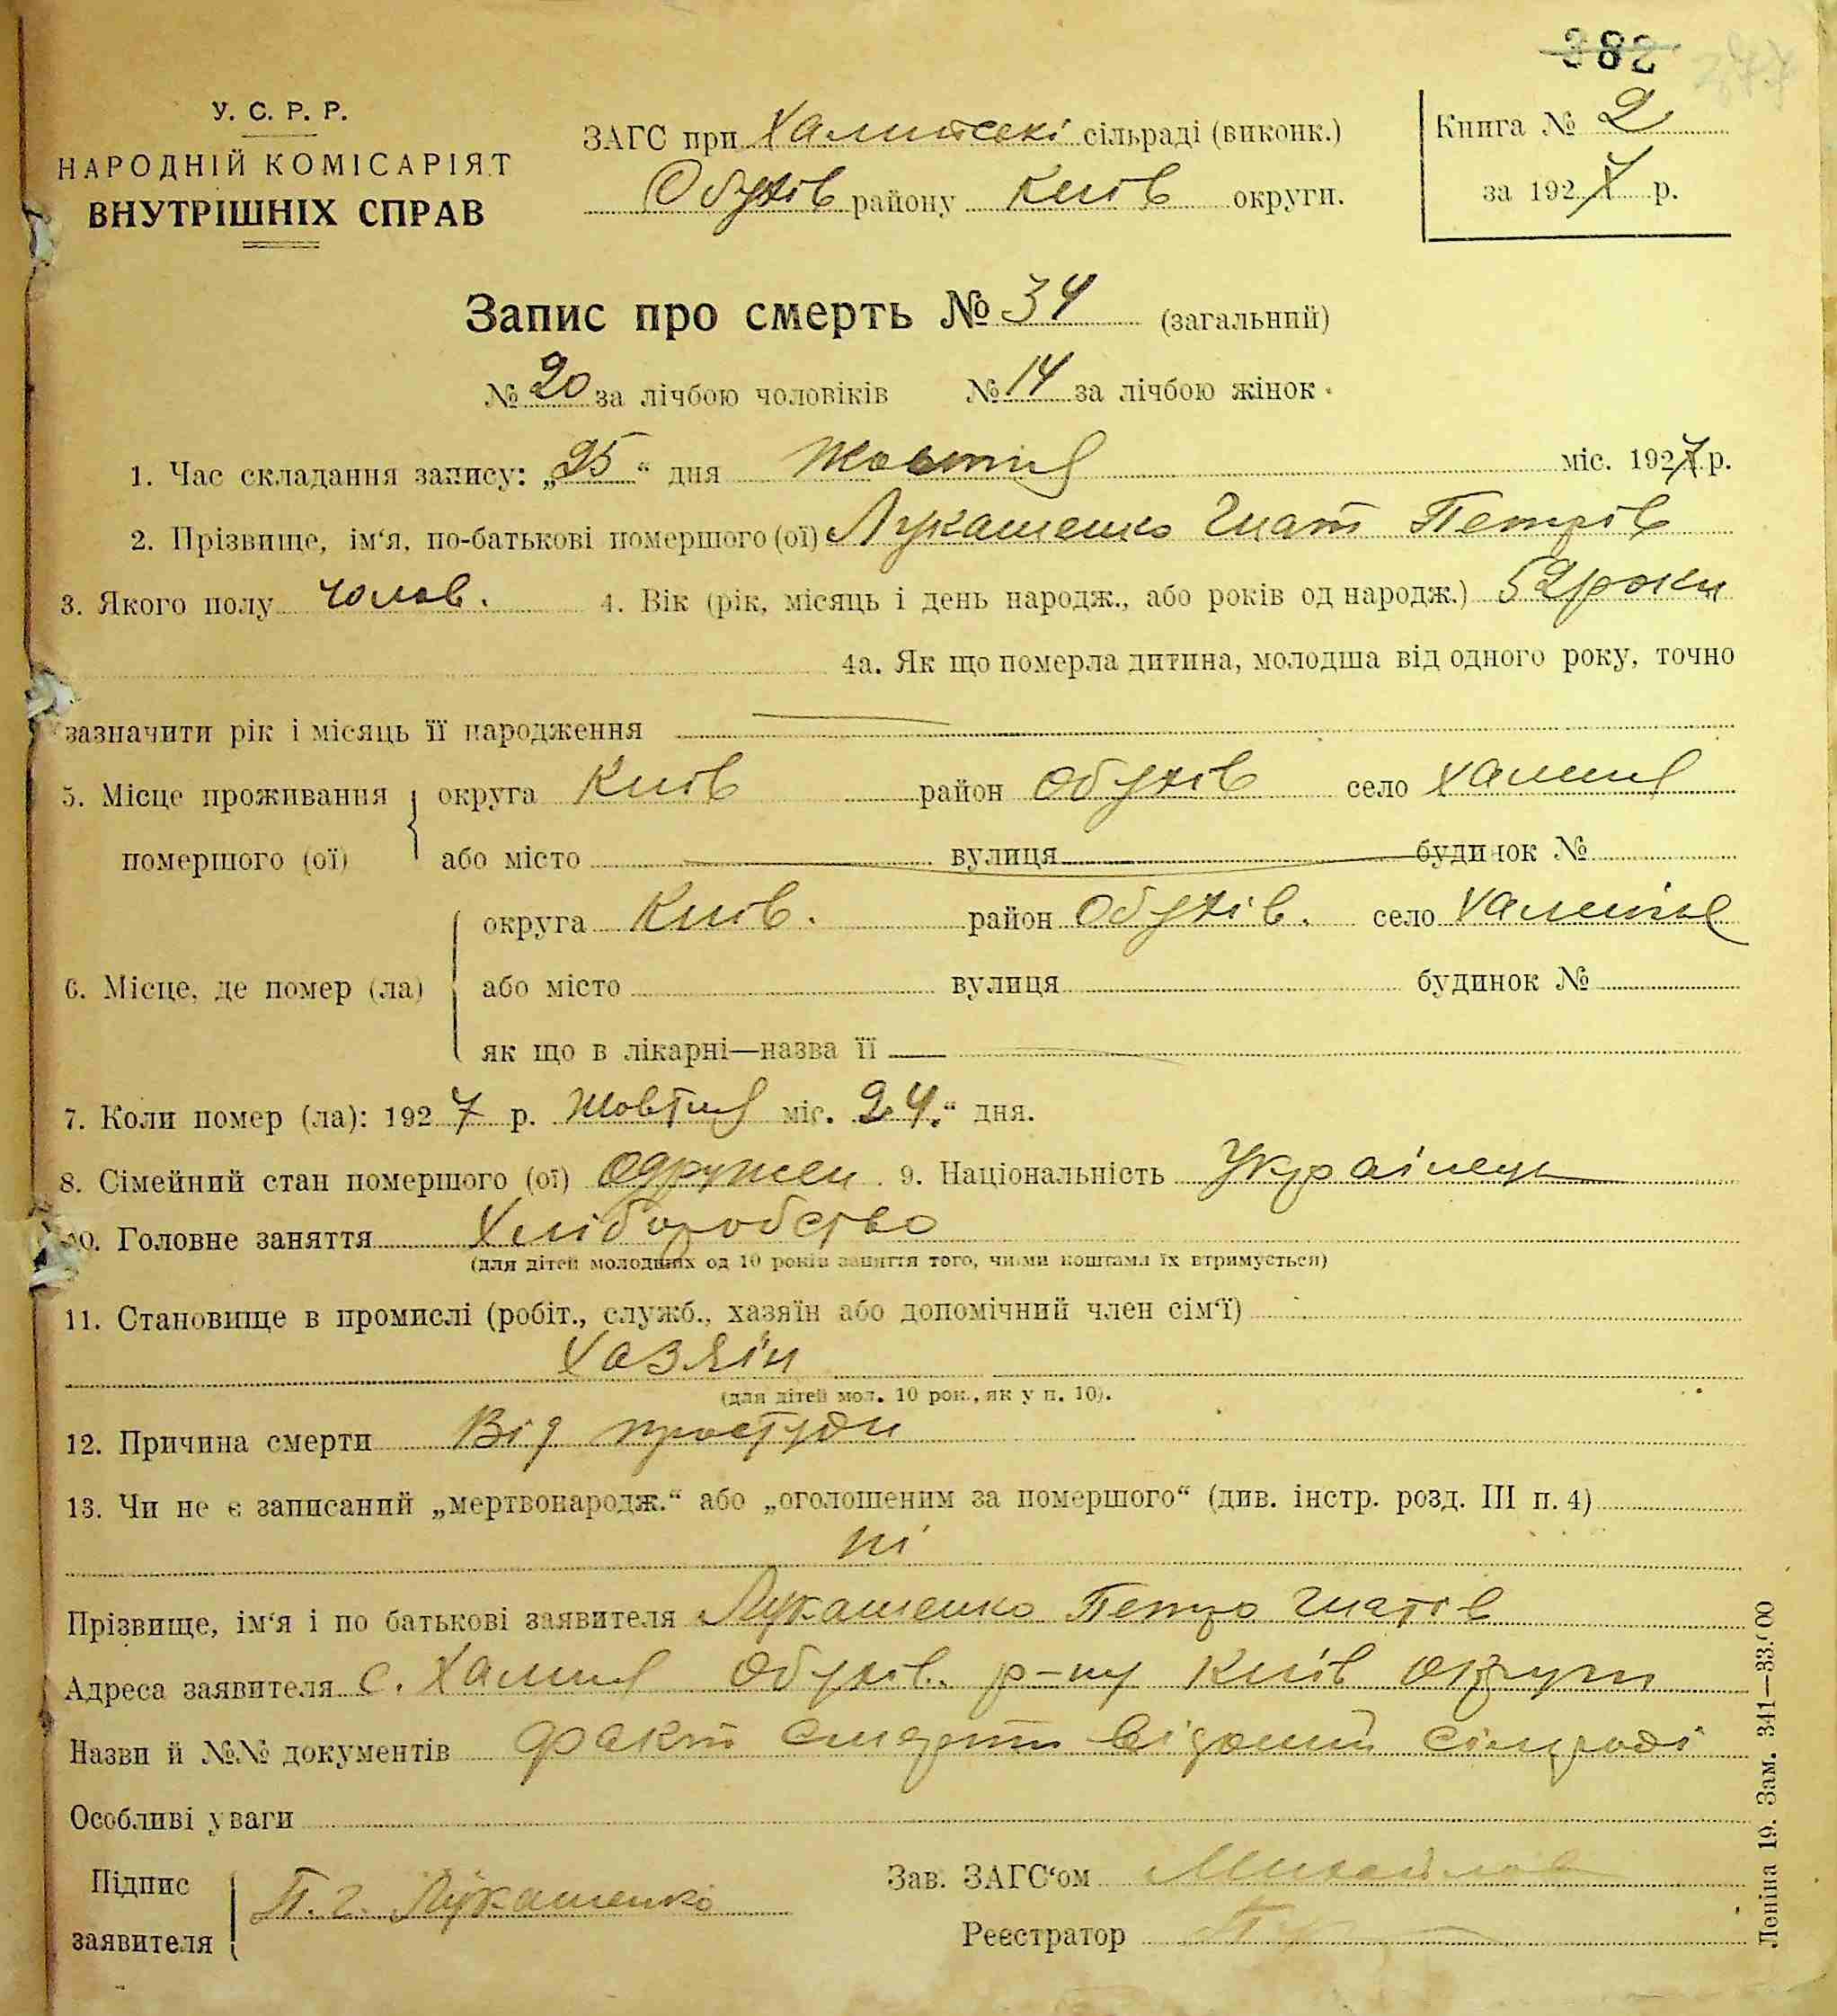 382
У. С. Р. Р.
НАРОДНІЙ КОМІСАРІЯТ
ВНУТРІШНІХ СПРАВ
ЗАГС при сільраді (виконк.)
Обухів району Київ округи.
Книга № 2
за 1927 р.
Запис про смерть № 34 (загальний)
№ 20 за лічбою чоловіків № 14 за лічбою жінок
1. Час складання запису: „25“ дня Жовтня міс. 1927 р.
2. Прізвище, ім‘я, по-батькові помершого (ої) Лукашенко Гнат Петрів
3. Якого полу чолов. 4. Вік (рік, місяць і день народж., або років од народж.) 52 роки
4а. Як що померла дитина, молодша від одного року, точно
зазначити рік і місяць її народження
5. Місце проживання помершого (ої) округа Київ район Обухів село Халепя
або місто вулиця будинок №
6. Місце, де помер (ла) округа Київ. район Обухів. село Халепʼє
або місто вулиця будинок №
як що в лікарні—назва її
7. Коли помер (ла): 1927 р. Жовтня міс. 24“ дня.
8. Сімейний стан помершого (ої) одружен 9. Національність Українець
10. Головне заняття Хліборобство
(для дітей молодших од 10 років заняття того, чиїми коштами їх втримується)
11. Становище в промислі (робіт., служб., хазяїн або допомічний член сім‘ї)
Хазяїн
(для дітей мол. 10 рок., як у п. 10).
12. Причина смерти Від простуди
13. Чи не є записаний „мертвонародж.“ або „оголошеним за помершого“ (див. інстр. розд. III п. 4)
ні
Прізвище, ім‘я і по батькові заявителя Лукашенко Петро Гнатів
Адреса заявителя с. Халепя Обухів. р-ну Київ округи
Назви й №№ документів Факт смерти відомий сільраді
Особливі уваги
Підпис заявителя П. Г. Лукашенко
Зав. ЗАГС‘ом
Реєстратор
Леніна 19. Зам. 341—33.000